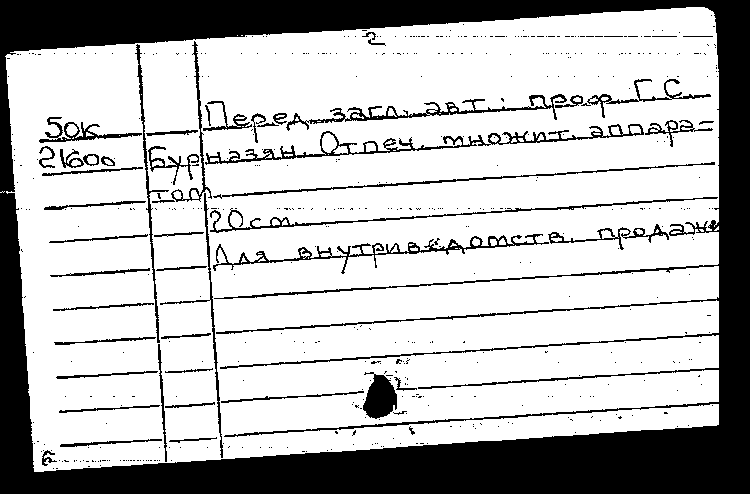 2
Перед загл. авт.: проф Г.С.
50к
21600 Бурназян. Отпеч. множит. аппара=
том
20 cm.
Для внутриведомств. продажи
6